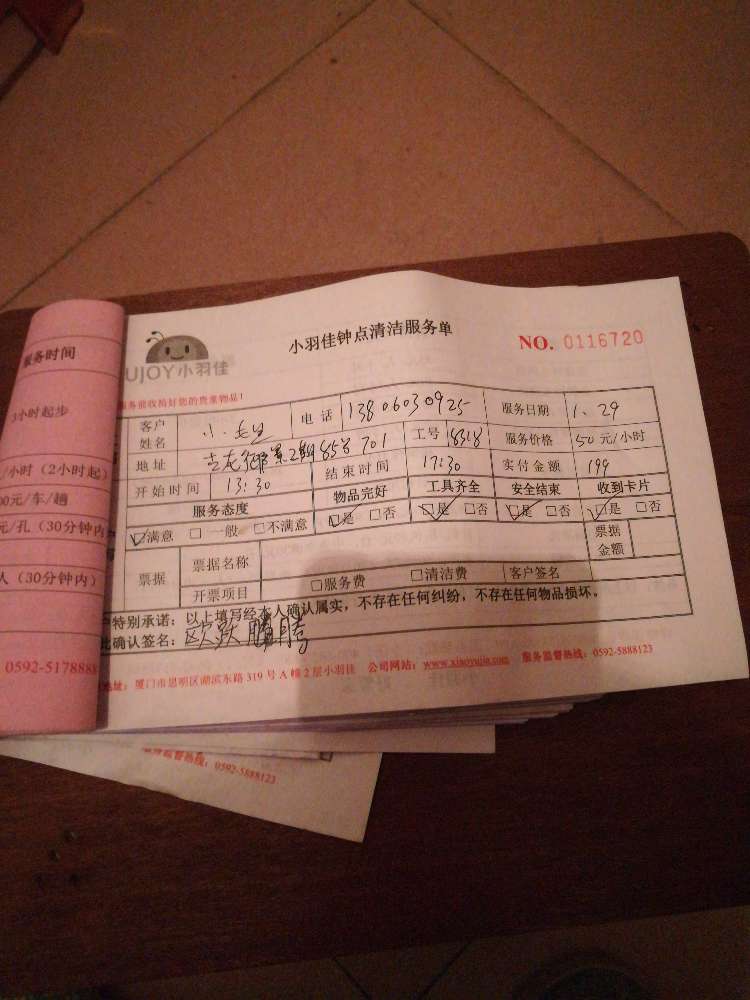 小羽佳钟点清洁服务单
NO. 0116720
UJOY小羽佳
服务前收拾好您的贵重物品!
客户姓名 电话 13806030925 服务日期 1.29
地址 858 701 工号 18318 服务价格 50元/小时
开始时间 13:30 结束时间 17:30 实付金额 199
服务态度 物品完好 工具齐全 安全结束 收到卡片
☑满意 □一般 □不满意 ☑是 □否 ☑是 □否 ☑是 □否 ☑是 □否
票据 票据名称 票据金额
开票项目 □服务费 □清洁费 客户签名
户特别承诺:以上填写经本人确认属实,不存在任何纠纷,不存在任何物品损坏。
此确认签名:欧跃腾
地址:厦门市思明区湖滨东路319号A幢2层小羽佳 公司网站:www.xiaoyujia.com 服务监督热线:0592-5888123
服务时间
3小时起步
/小时(2小时起)
00元/车/趟
元/孔(30分钟内
人(30分钟内)
0592-5178888
服务监督热线:0592-5888123